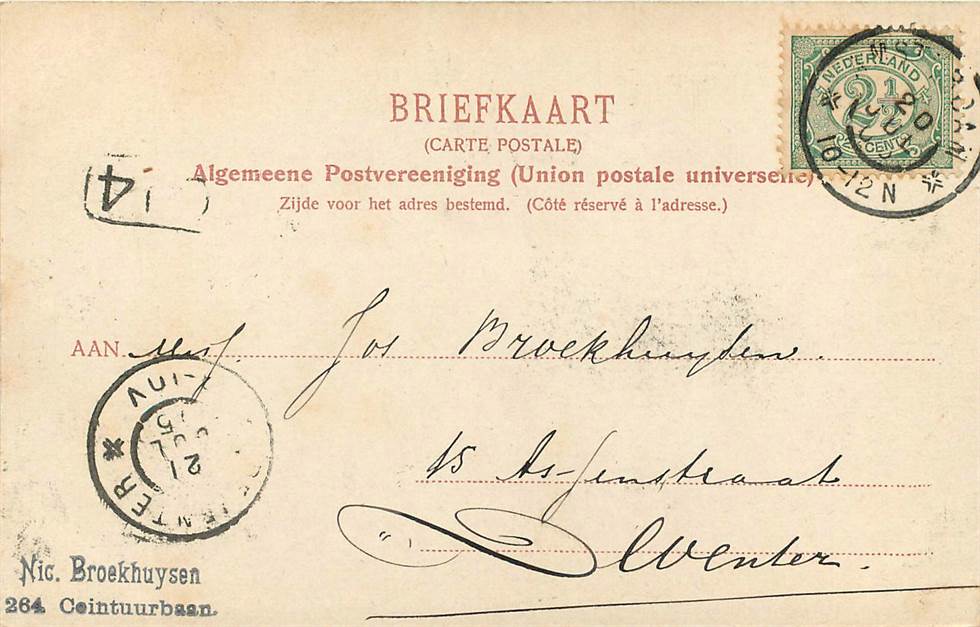 BRIEFKAART
(CARTE POSTALE)
Algemeene Postvereeniging (Union postale universelle)
Zijde voor het adres bestemd. (Côté réservé à l'adresse.)
NEDERLAND
2½
CENT
10-12 N
4
AAN Jos Broekhuysen.
15 straat
Deventer.
DEVENTER
21
JUL
Nic. Broekhuysen
264 Ceintuurbaan.